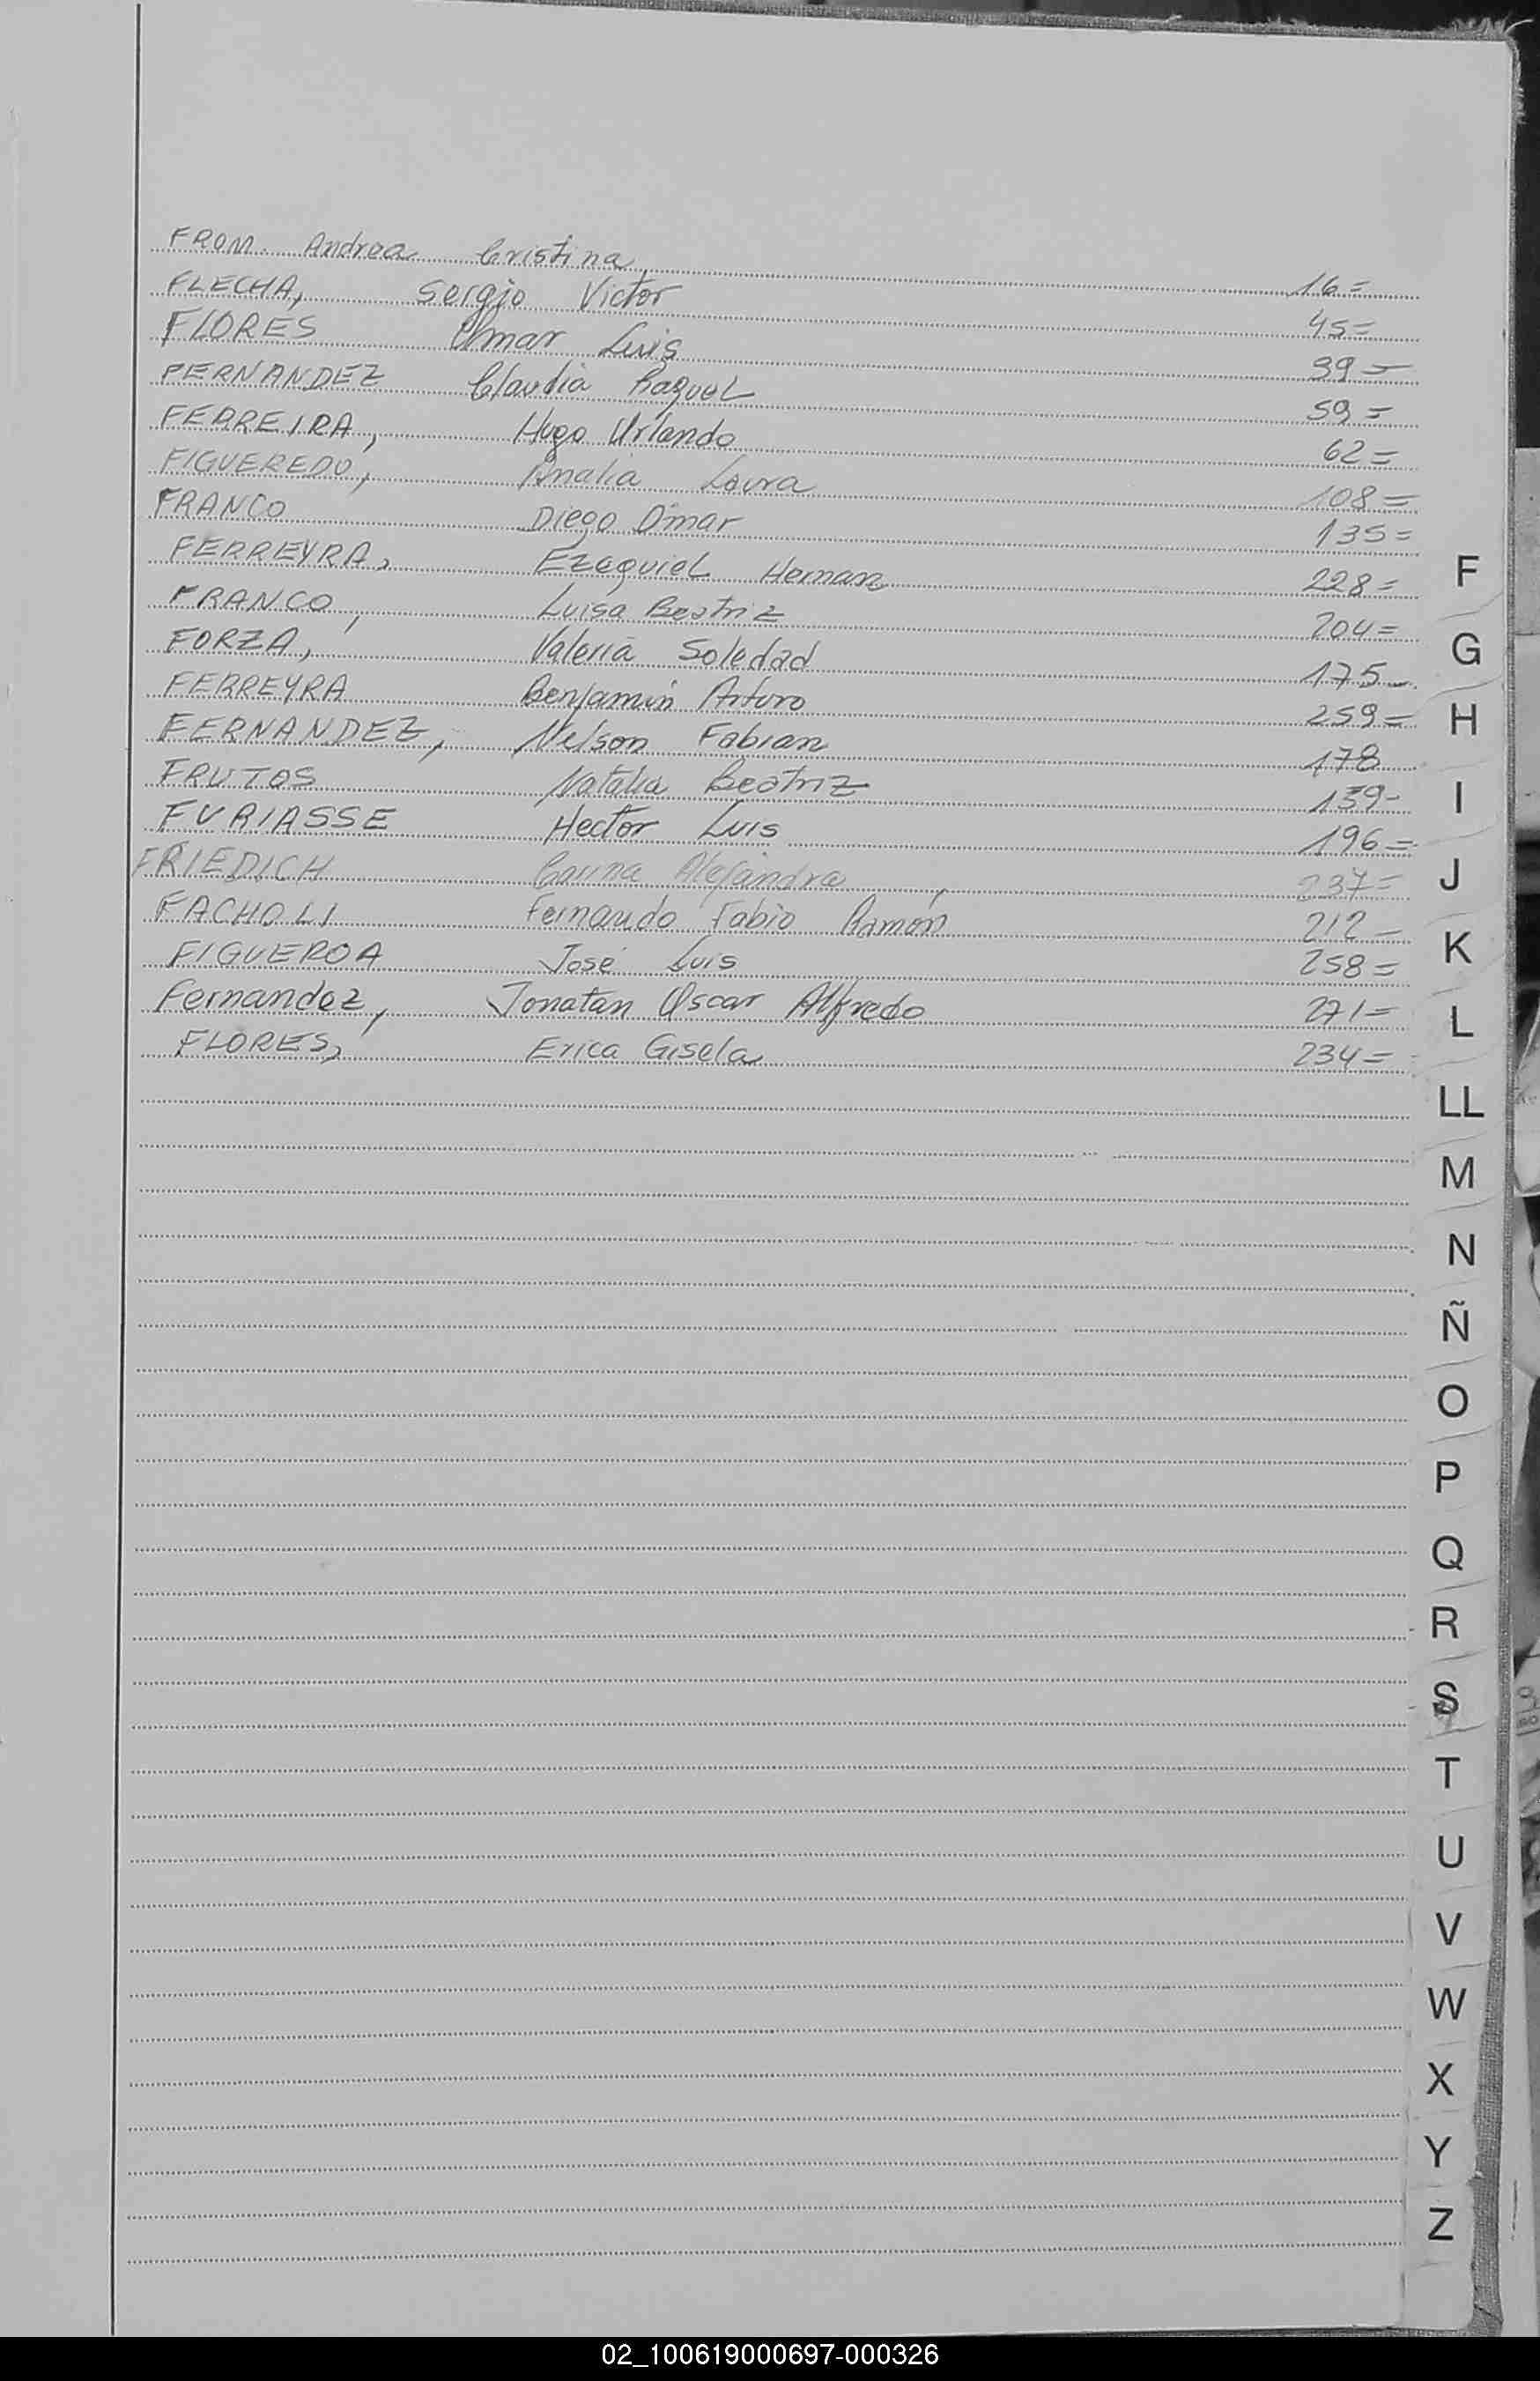 FROM. Andrea Cristina 16=
FLECHA, Sergio Victor 45=
FLORES Omar Luis 39=
FERNANDEZ Claudia Raquel 59=
FERREIRA, Hugo Orlando 62=
FIGUEREDO, Analia Laura 108=
FRANCO Diego Omar 135=
FERREYRA, Ezequiel Hernan 228=
FRANCO, Luisa Beatriz 204=
FORZA, Valeria Soledad 175-
FERREYRA Benjamin Arturo 259=
FERNANDEZ, Nelson Fabian 178
FRUTOS Natalia Beatriz 139-
FURIASSE Hector Luis 196=
FRIEDICH Carina Alejandra 237=
FACHOLI Fernando Fabio Ramón 212-
FIGUEROA José Luis 258=
Fernandez, Jonatan Oscar Alfredo 271=
FLORES, Erica Gisela 234=
F
G
H
I
J
K
L
LL
M
N
Ñ
O
P
Q
R
S
T
U
V
W
X
Y
Z
02_100619000697-000326